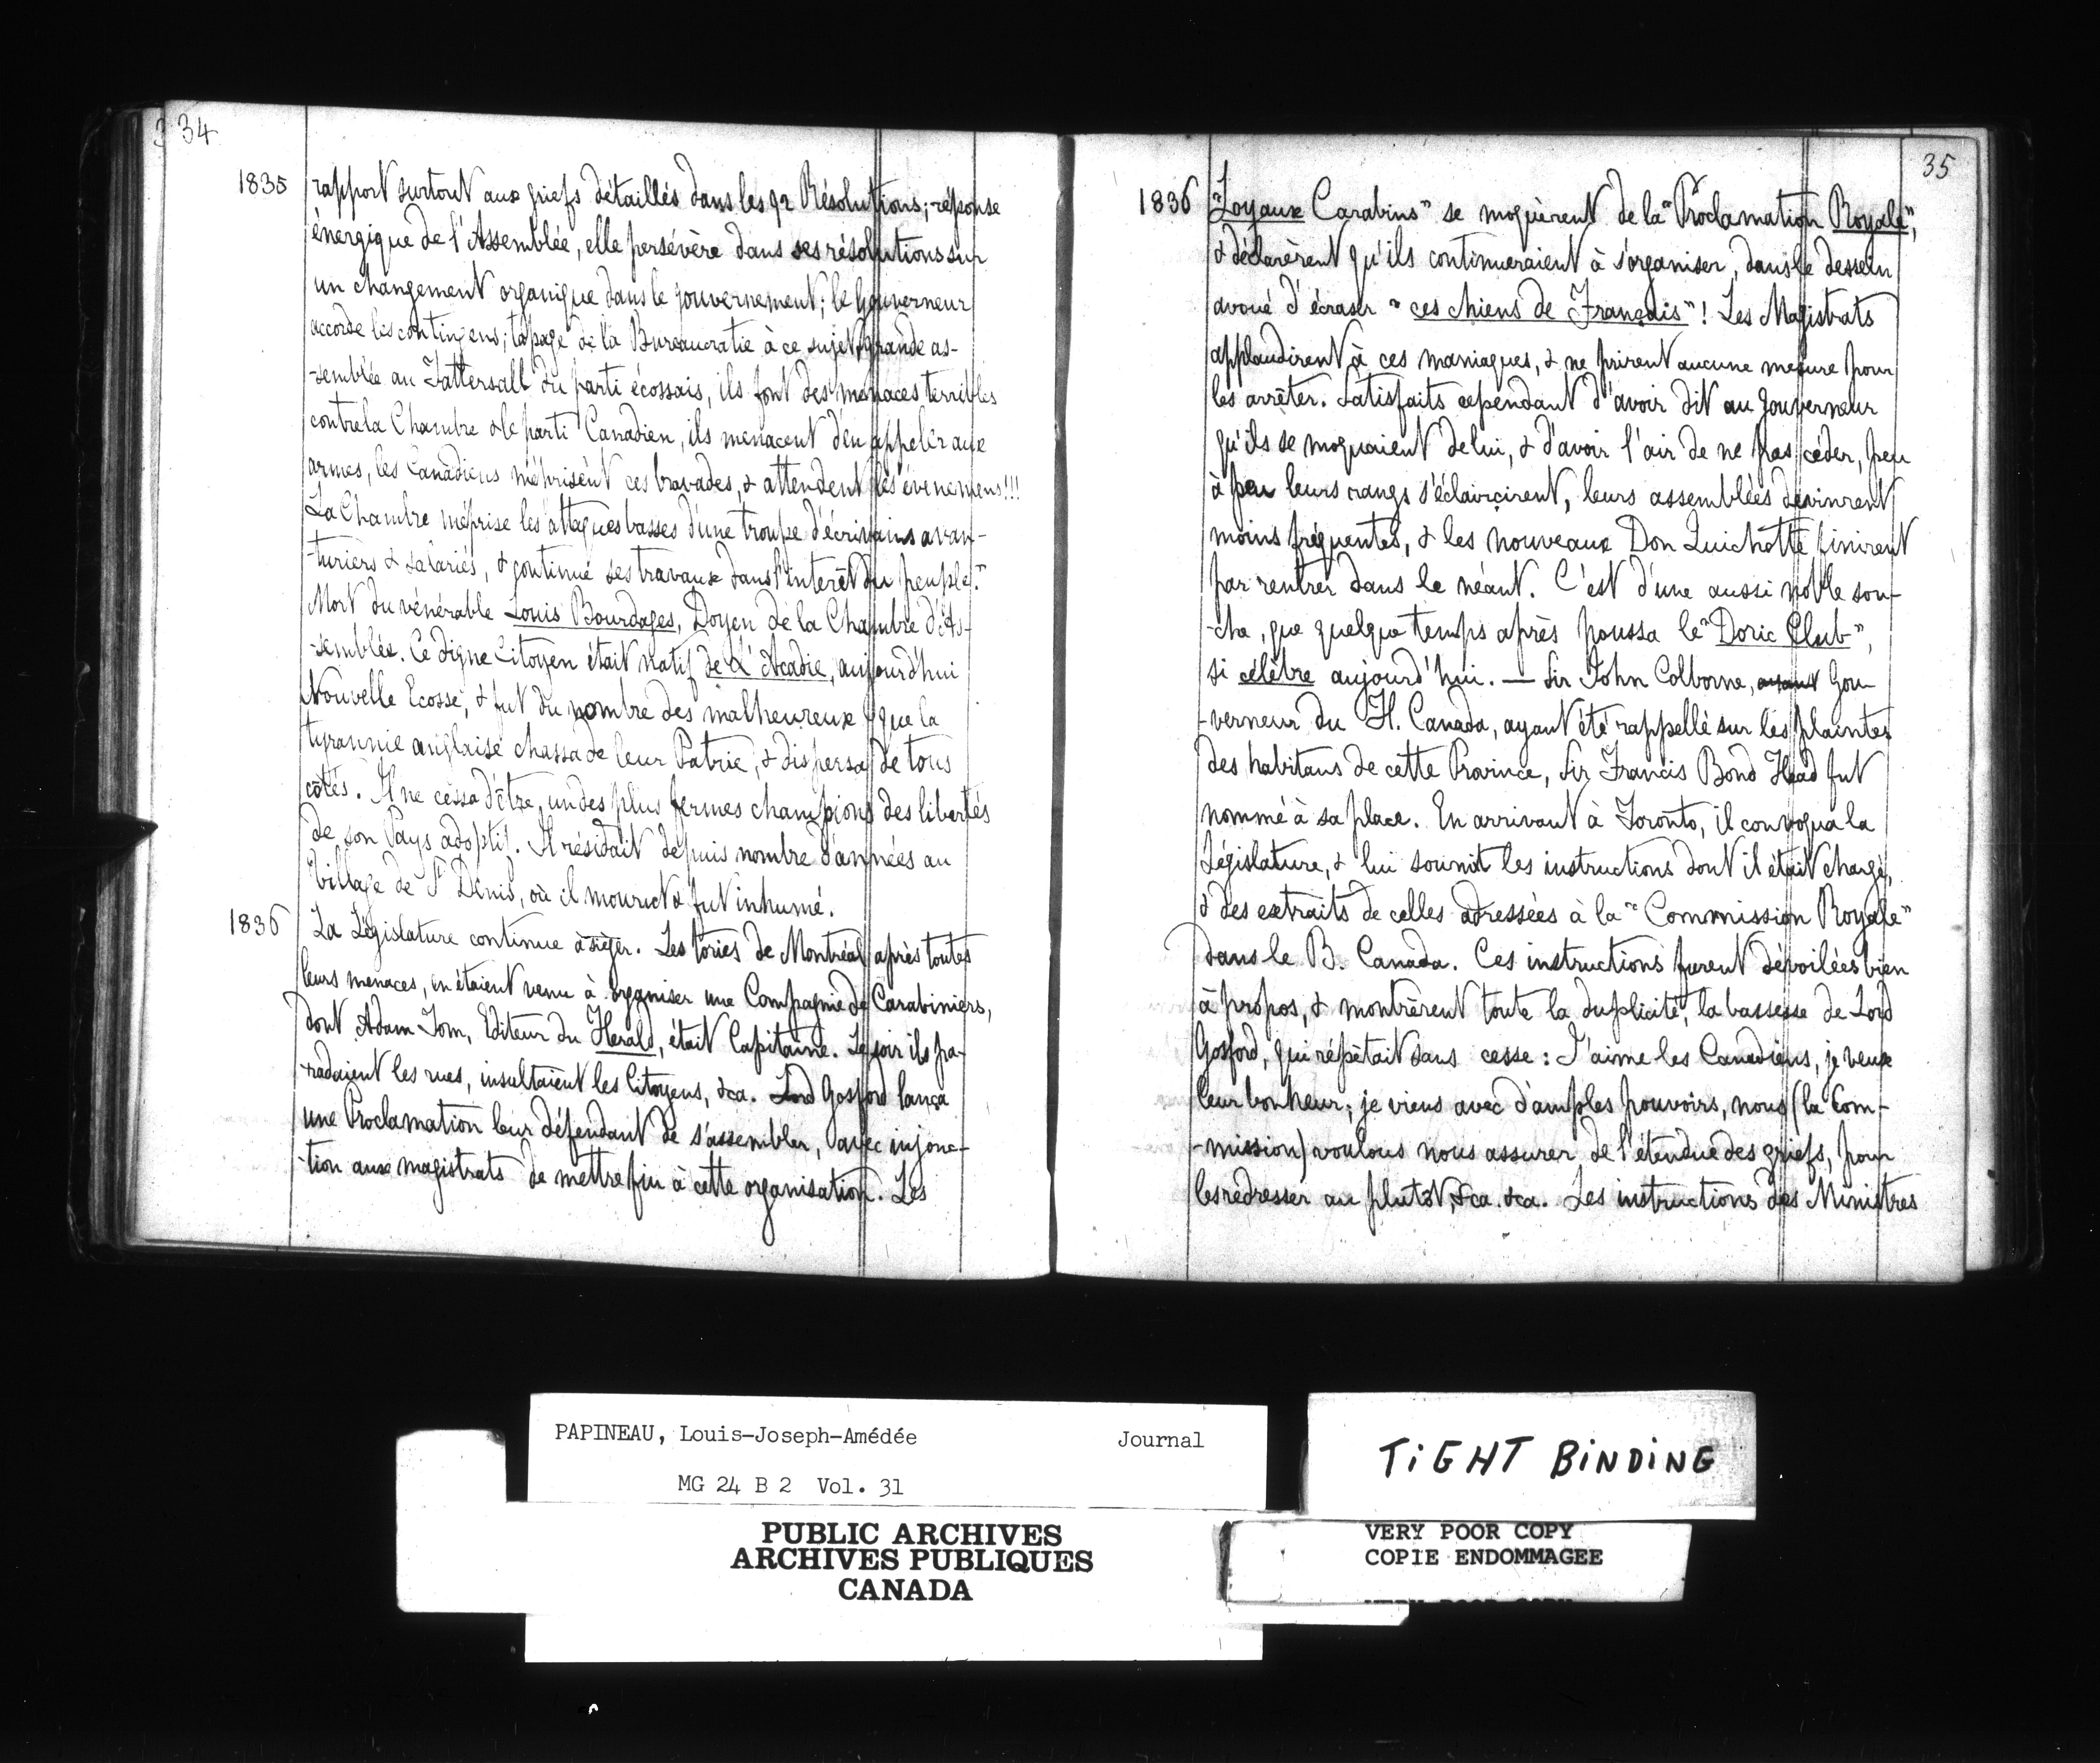 34
1835 rapport surtout aux griefs détaillés dans les 92 Résolutions; réponse
énergique de l'Assemblée, elle persévère dans ses résolutions sur
un changement organique dans le gouvernement; le Gouverneur
accorde les contingens; tapage de la Bureaucratie à ce sujet, grande as-
-semblée au Tattersall du parti écossais, ils font des menaces terribles
contre la Chambre & le parti Canadien, ils menacent d'en appeler aux
armes, les Canadiens méprisent ces bravades, & attendent les évenemens!!!
La Chambre méprise les attaques basses d'une troupe d'écrivains avan-
-turiers & salariés, & continue ses travaux dans l'intérêt du peuple."
Mort du vénérable Louis Bourdages, Doyen de la Chambre d'As-
-semblée. Ce digne Citoyen était natif de L'Acadie, aujourd'hui
Nouvelle Ecosse, & fut du nombre des malheureux que la
tyrannie anglaise chassa de leur Patrie, & dispersa de tous
côtés. Il ne cessa d'être, un des plus fermes champions des libertés
de son Pays adoptif. Il résidait depuis nombre d'années au
Village de St Denis, où il mourut & fut inhumé.
1836 La Législature continue à siéger. Les tories de Montréal après toutes
leurs menaces, en étaient venu à organiser une Compagnie de Carabiniers,
dont Adam Tom, Editeur du Herald, était Capitaine. Le soir ils pa-
-radaient les rues, insultaient les Citoyens, &ca. Lord Gosford lança
une Proclamation leur défendant de s'assembler, avec injonc-
-tion aux magistrats de mettre fin à cette organisation. Les
35
1836 "Loyaux Carabins" se moquèrent de la "Proclamation Royale",
& déclarèrent qu'ils continueraient à s'organiser, dans le dessein
avoué d'écraser "ces chiens de Français"! Les Magistrats
applaudirent à ces maniaques, & ne prirent aucune mesure pour
les arrêter. Satisfaits cependant d'avoir dit au Gouverneur
qu'ils se moquaient de lui, & d'avoir l'air de ne pas céder, peu
à peu leurs rangs s'éclaircirent, leurs assemblées devinrent
moins fréquentes, & les nouveaux Don Quichotte finirent
par rentrer dans le néant. C'est d'une aussi noble sou-
-che, que quelque temps après poussa le "Doric Club",
si célèbre aujourd'hui. — Sir John Colborne, ayant Gou-
-verneur du H. Canada, ayant été rappellé sur les plaintes
des habitans de cette Province, Sir Francis Bond Head fut
nommé à sa place. En arrivant à Toronto, il convoqua la
Législature, & lui soumit les instructions dont il était chargé,
& des extraits de celles adressées à la "Commission Royale"
dans le B. Canada. Ces instructions furent dévoilées bien
à propos, & montrèrent toute la duplicité, la bassesse de Lord
Gosford, qui répétait sans cesse: J'aime les Canadiens, je veux
leur bonheur; je viens avec d'amples pouvoirs, nous (la Com-
-mission) voulons nous assurer de l'étendue des griefs, pour
les redresser au plutôt, &ca. &ca. Les instructions des Ministres
PAPINEAU, Louis-Joseph-Amédée Journal
MG 24 B 2 Vol. 31
PUBLIC ARCHIVES
ARCHIVES PUBLIQUES
CANADA
TIGHT BINDING
VERY POOR COPY
COPIE ENDOMMAGEE